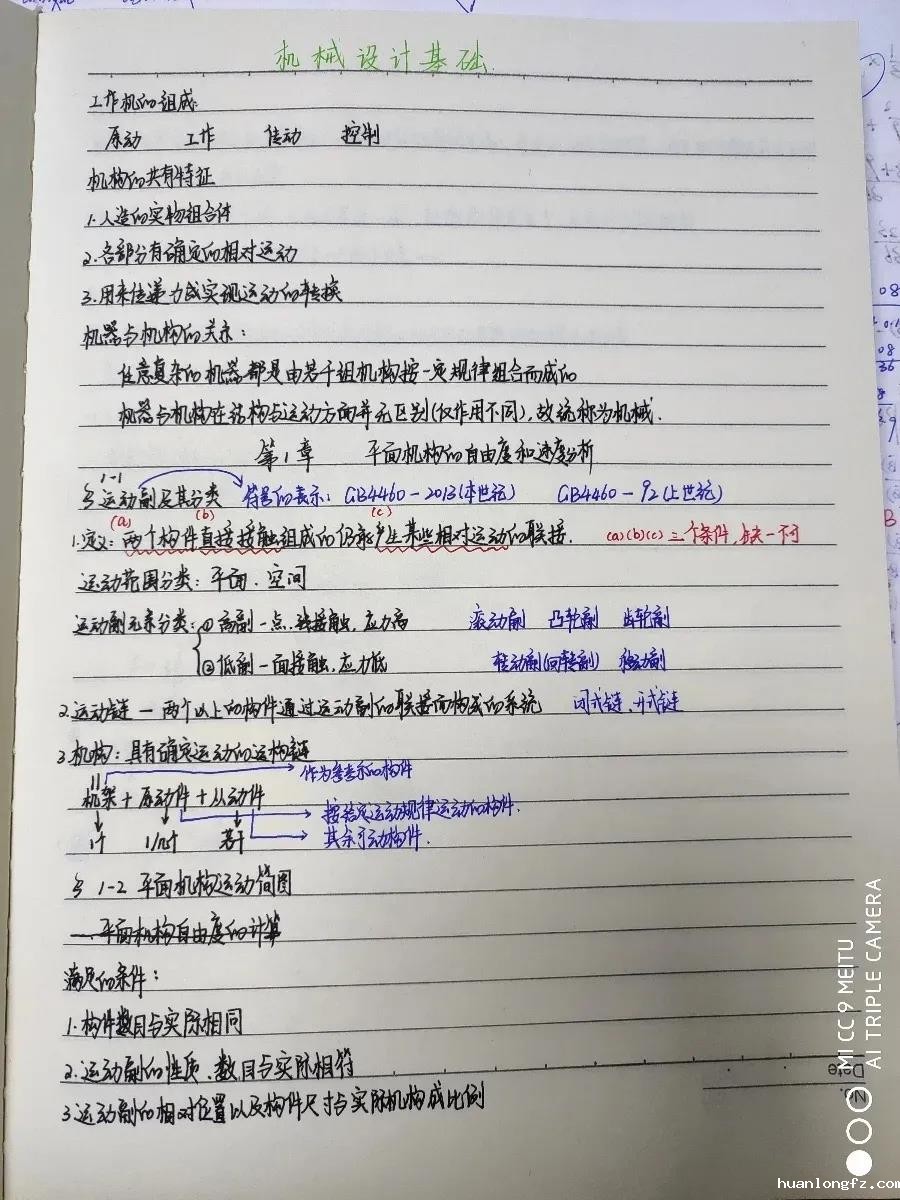 机械设计基础
工作机的组成:
原动 工作 传动 控制
机构的共有特征
1.人造的实物组合体
2.各部分有确定的相对运动
3.用来传递力或实现运动的转换
机器与机构的关系:
任意复杂的机器都是由若干组机构按一定规律组合而成的
机器与机构在结构与运动方面并无区别(仅作用不同),故统称为机械.
第1章 平面机构的自由度和速度分析
1-1
§运动副及其分类 符号的表示: GB4460-2013(本世纪) GB4460-92(上世纪)
(a) (b) (c)
1.定义:两个构件直接接触组成的仍能产生某些相对运动的联接. (a)(b)(c)三个条件,缺一不可
运动范围分类:平面.空间
运动副元素分类:①高副-点.线接触,应力高 滚动副 凸轮副 齿轮副
②低副-面接触,应力低 转动副(回转副) 移动副
2.运动链-两个以上的构件通过运动副的联接而构成的系统 闭式链、开式链
3.机构:具有确定运动的运构链
作为参考系的构件
机架+原动件+从动件
按给定运动规律运动的构件.
1个 1/几个 若干 其余可动构件.
§1-2 平面机构运动简图
一.平面机构自由度的计算
满足的条件:
1.构件数目与实际相同
2.运动副的性质、数目与实际相符
3.运动副的相对位置以及构件尺寸与实际机构成比例
Date
No.
MI CC 9 MEITU
AI TRIPLE CAMERA
huanlongfz.com